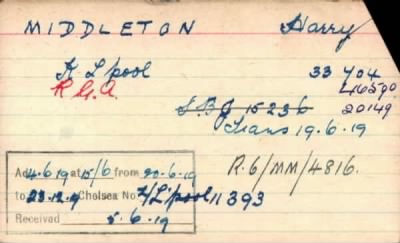 MIDDLETON Harry
K L'pool 33 404
R.G.A. 46590
S.B.G 15236 20149
Trans 19.6.19
Ad 4.6.19 at 15/6 from 20-6-19
R.6/MM/4816.
to 23.12.9 Chelsea No. 4/L'pool 11393
Received 5.6.19